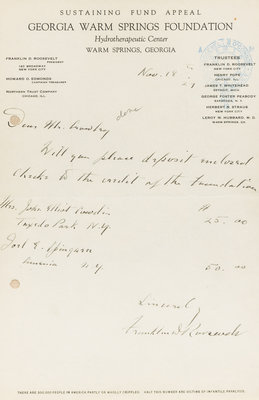 SUSTAINING FUND APPEAL
GEORGIA WARM SPRINGS FOUNDATION
Hydrotherapeutic Center
WARM SPRINGS, GEORGIA
FRANKLIN D. ROOSEVELT
PRESIDENT
120 BROADWAY
NEW YORK CITY
HOWARD D. EDMONDS
CAMPAIGN TREASURER
NORTHERN TRUST COMPANY
CHICAGO, ILL.
TRUSTEES
FRANKLIN D. ROOSEVELT
NEW YORK CITY
HENRY POPE
CHICAGO, ILL.
JAMES T. WHITEHEAD
DETROIT, MICH.
GEORGE FOSTER PEABODY
SARATOGA, N. Y.
HERBERT N. STRAUS
NEW YORK CITY
LEROY W. HUBBARD, M. D.
WARM SPRINGS, GA.
Nov. 18
Dear Mr.
done
Will you please deposit enclosed
checks to the credit of the Foundation
Mrs. John Elliot
Tuxedo Park N.Y. 25.00
Joel E. Spingarn
Amenia N.Y. 50.00
Sincerely
Franklin D Roosevelt
THERE ARE 300,000 PEOPLE IN AMERICA PARTLY OR WHOLLY CRIPPLED. HALF THIS NUMBER ARE VICTIMS OF INFANTILE PARALYSIS.